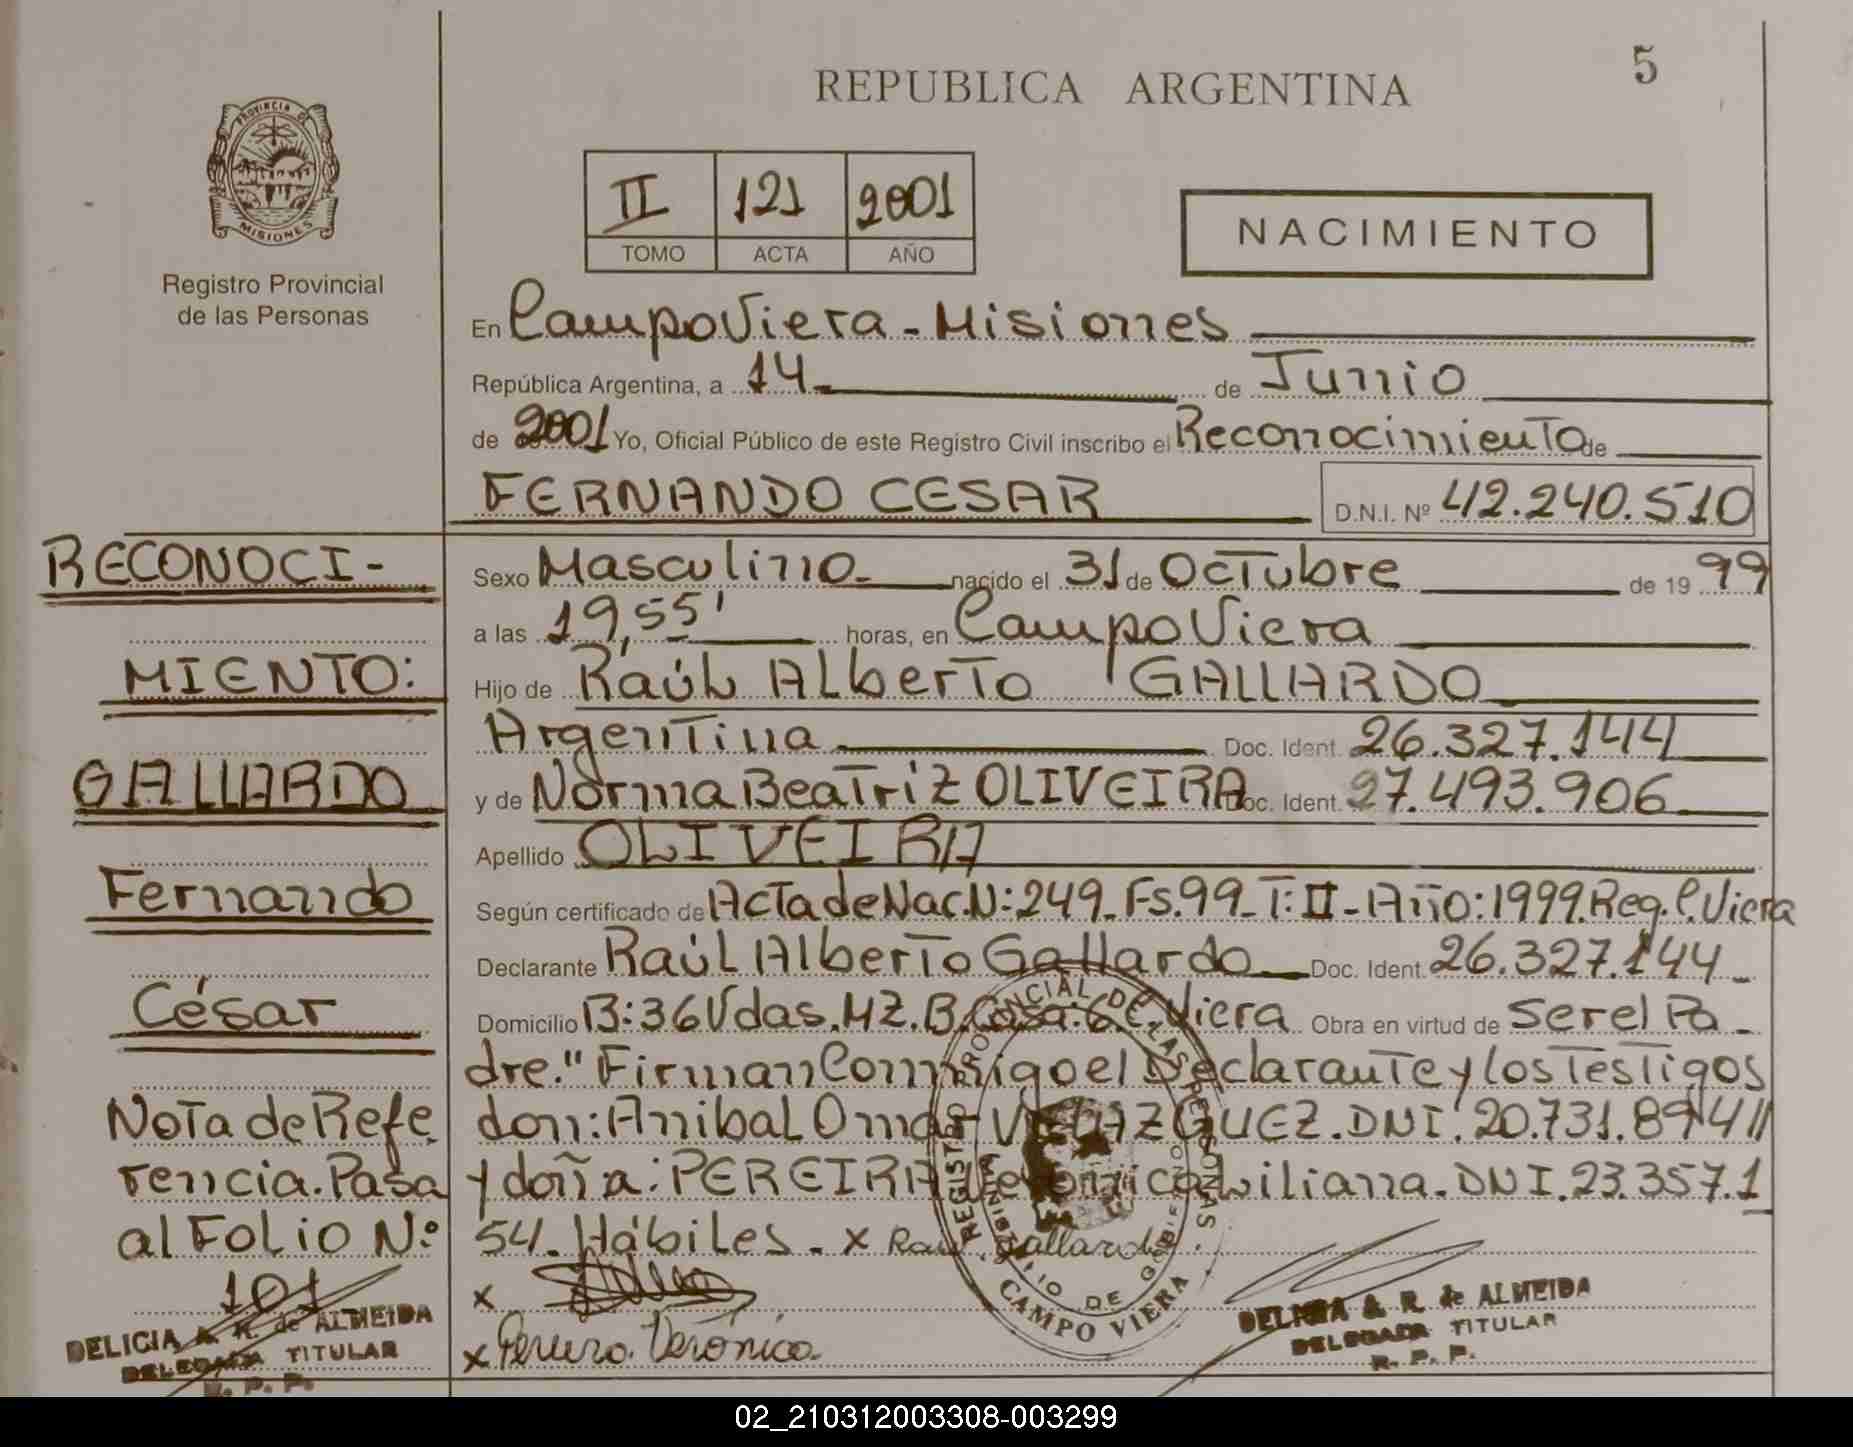 REPUBLICA ARGENTINA
5
PROVINCIA DE
MISIONES
Registro Provincial
de las Personas
II 121 2001
TOMO ACTA AÑO
NACIMIENTO
En Campo Viera - Misiones
República Argentina, a 14 de Junio
de 2001 Yo, Oficial Público de este Registro Civil inscribo el Reconocimiento de
FERNANDO CESAR D.N.I. Nº 42.240.510
Sexo Masculino nacido el 31 de Octubre de 19 99
a las 19,55' horas, en Campo Viera
Hijo de Raúl Alberto GALLARDO
Argentina Doc. Ident. 26.327.144
y de Norma Beatriz OLIVEIRA Doc. Ident. 27.493.906
Apellido OLIVEIRA
Según certificado de Acta de Nac. N: 249 - Fs. 99 - T: II - Año: 1999. Reg. C. Viera
Declarante Raúl Alberto Gallardo Doc. Ident. 26.327.144
Domicilio B: 36 Vdas. MZ. B. Casa: 6. C. Viera Obra en virtud de Ser el Pa-
dre." Firman Conmigo el Declarante y los Testigos
don: Anibal Omar VELAZQUEZ. DNI. 20.731.894 //
y doña: PEREIRA Veronica Liliana. DNI. 23.357.1
54. Hábiles. x Raul Gallardo
x
x Pereira Verónica
RECONOCI-
MIENTO:
GALLARDO
Fernando
César
Nota de Refe
rencia. Pasa
al Folio Nº
101
DELICIA A. R. de ALMEIDA
DELEGADA TITULAR
R. P. P.
REGISTRO PROVINCIAL DE LAS PERSONAS
CAMPO VIERA
DELICIA A. R. de ALMEIDA
DELEGADA TITULAR
R. P. P.
02_210312003308-003299